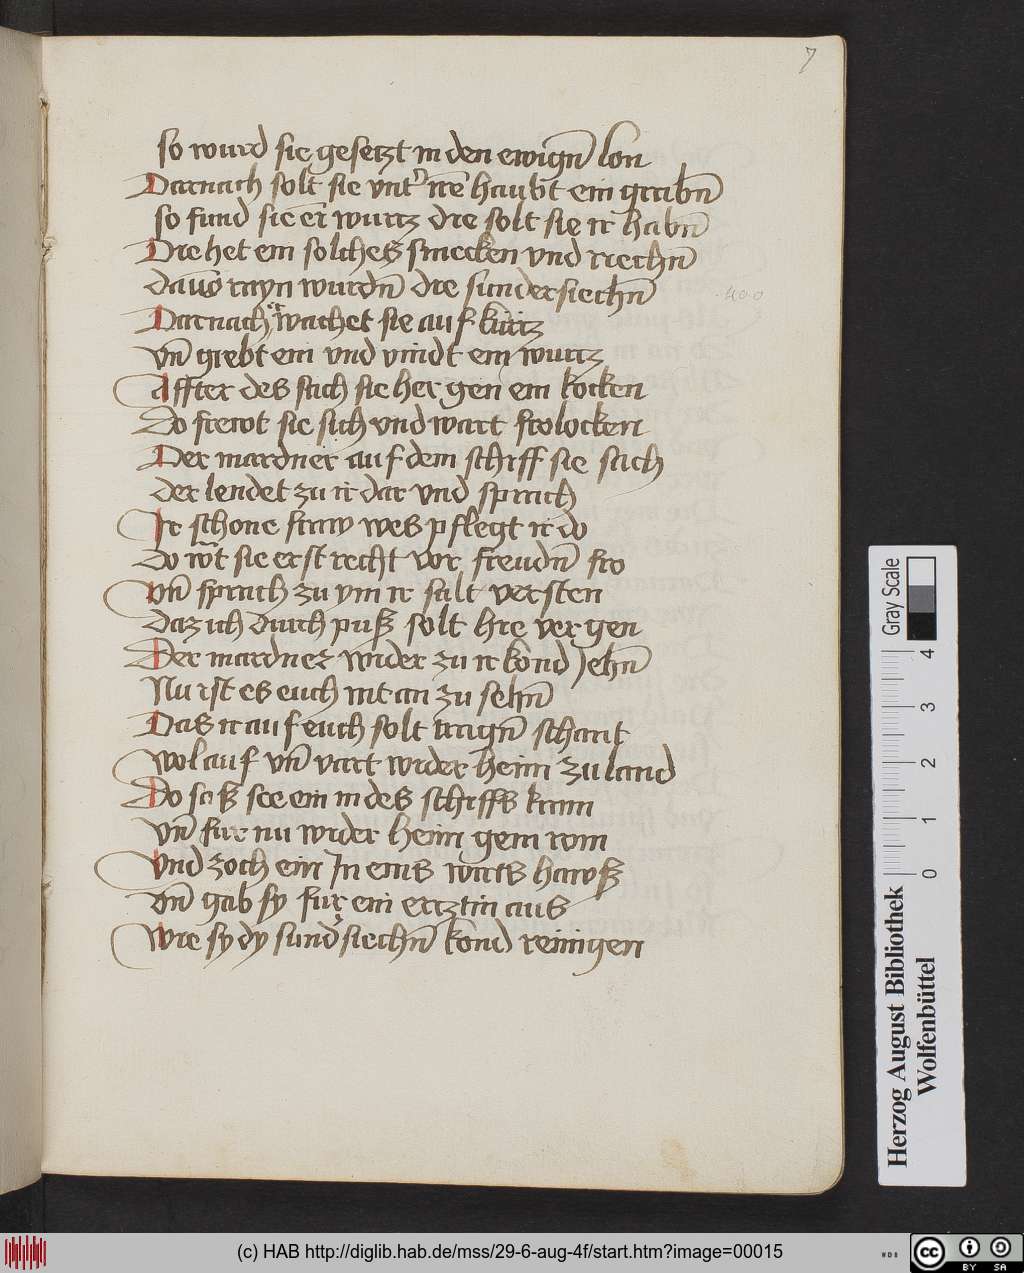 7
so wurd sie gesetzt in den ewign̄ lon
Darnach solt sie vnt' irē haubt ein grabn̄
so fund sie ein wurtz die solt sie ir habn̄
Die het ein solches smecken vnd riechn̄
dauō rayn wurdn̄ die sundersiechn̄
400
Darnach erwachet sie auf kurtz
vn̄ grebt ein vnd vindt ein wurtz
Affter des sach sie her gen ein kocken
Do frewt sie sich vnd wart frolocken
Der mardner auf dem schiff sie sach
der lendet zu ir dar vnd sprach
Ir schone fraw wes pflegt ir do
Do wt sie erst recht vor freudn̄ fro
vn̄ sprach zu ym ir salt versten
daz ich durch puß solt hie vergen
Der mardner wider zu ir kond jehn̄
Nu ist es euch nit an zu sehn̄
Das ir auf euch solt tragn̄ schant
wol auf vn̄ vart wider heim zu land
Do saß sie ein in des schiffs kram
vn̄ fur nu wider heim gem rom
vnd zoch ein In eins wirts hawß
vn̄ gab sy fur ein ertztin aus
wie sy dy sund'siechn̄ kond reinigen
Gray Scale
4 3 2 1 0
Herzog August Bibliothek
Wolfenbüttel
(c) HAB http://diglib.hab.de/mss/29-6-aug-4f/start.htm?image=00015
WDB
cc BY SA